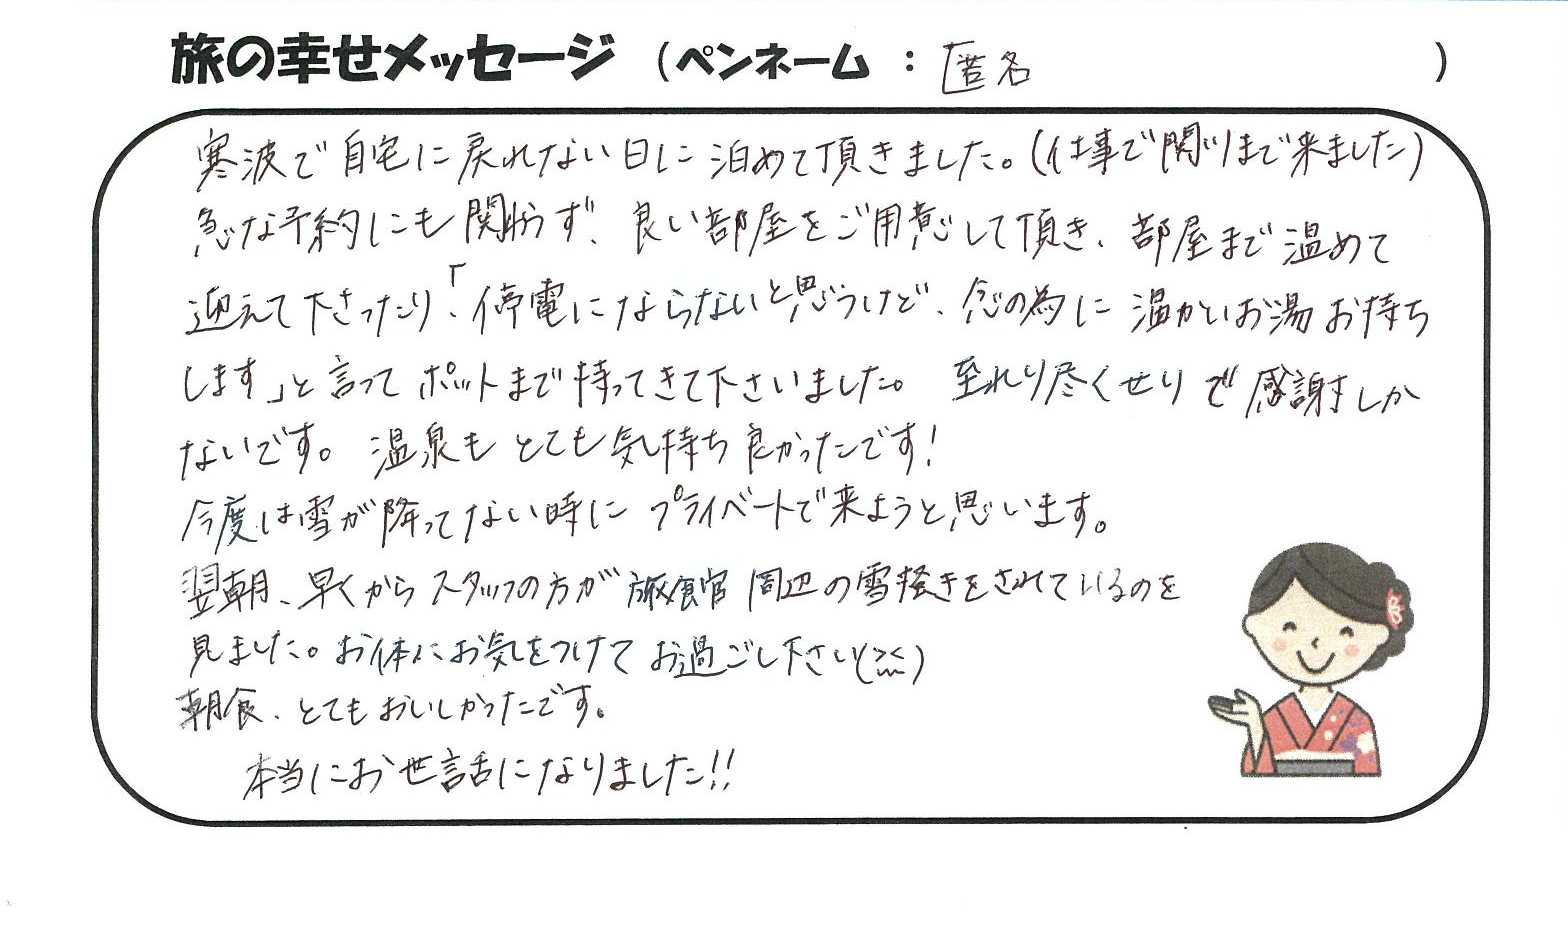 旅の幸せメッセージ (ペンネーム : 匿名 )
寒波で自宅に戻れない日に泊めて頂きました。(仕事で関川まで来ました)
急な予約にも関わらず、良い部屋をご用意して頂き、部屋まで温めて
迎えて下さったり、「停電にならないと思うけど、念の為に温かいお湯お持ち
します」と言ってポットまで持ってきて下さいました。至れり尽くせりで感謝しか
ないです。温泉もとても気持ち良かったです!
今度は雪が降ってない時にプライベートで来ようと思います。
翌朝、早くからスタッフの方が旅館周辺の雪掻きをされているのを
見ました。お体にお気をつけてお過ごし下さい(><)
朝食、とてもおいしかったです。
本当にお世話になりました!!